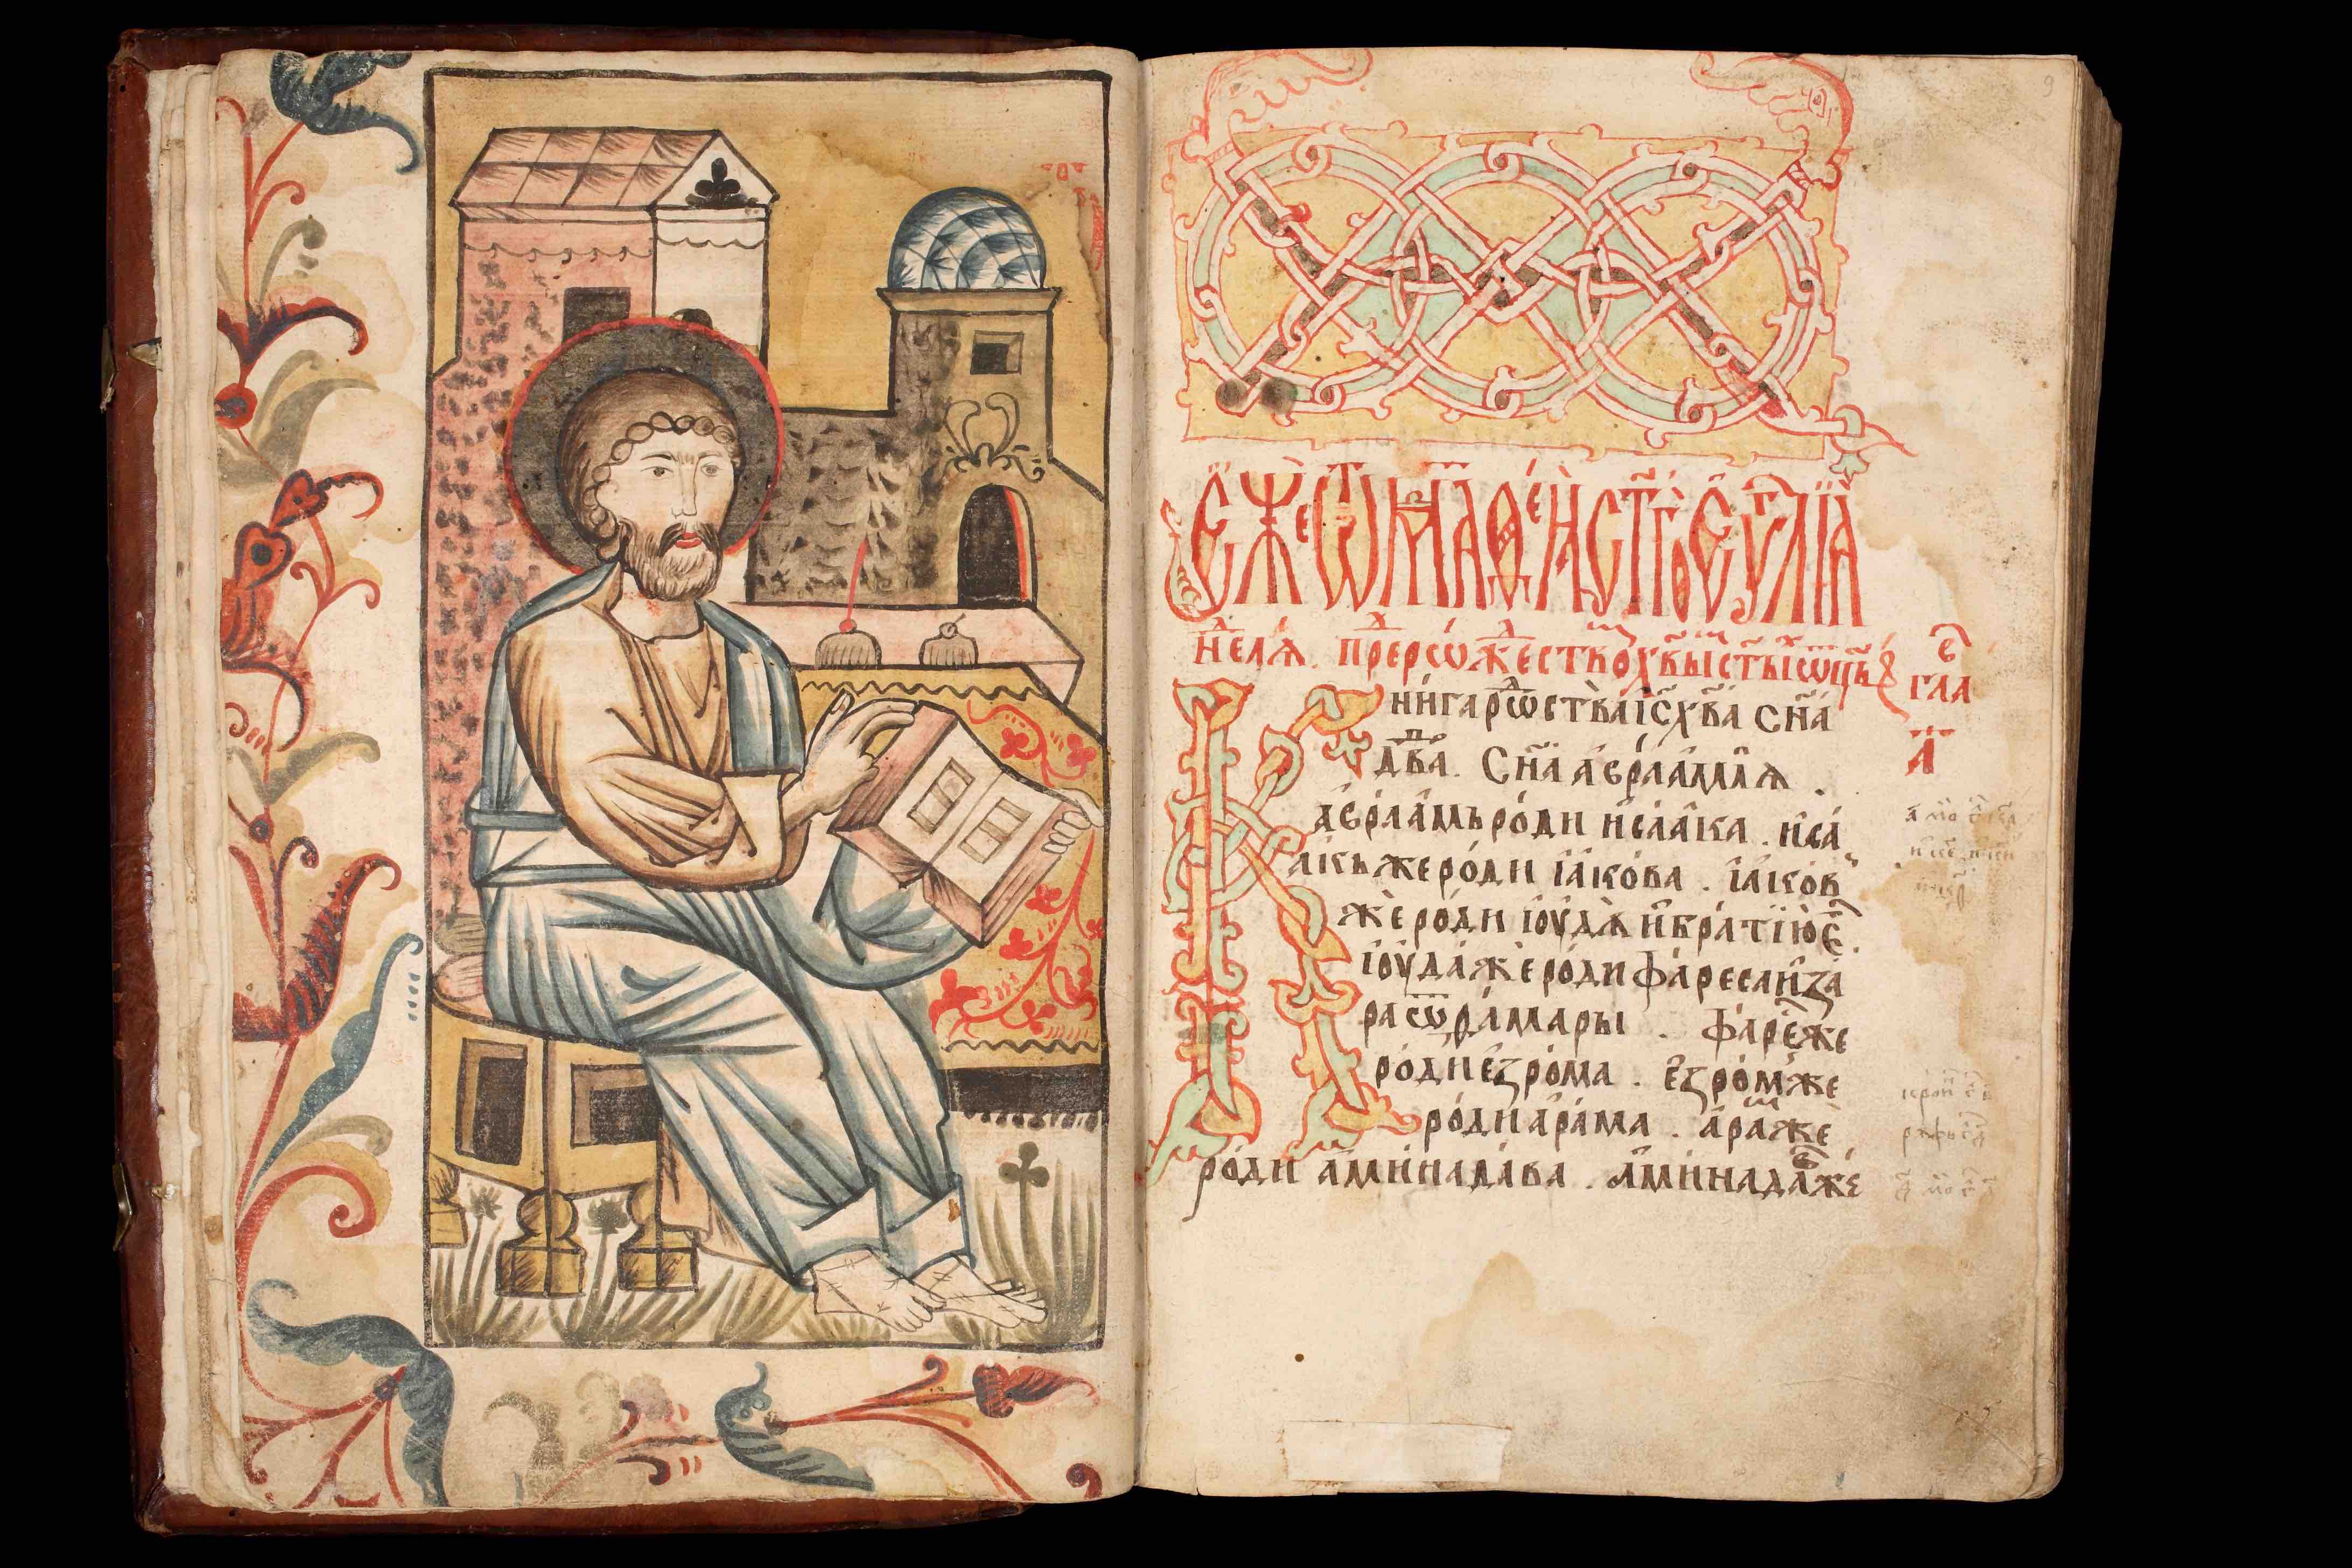 Є҆́же ѿ маѳе́а ст҃г̀о є҆ѵⷢ҇лїа
Нелѧⷣ. прⷣе рⷤсⷣѡествⷨо хв҃ыⷨ ст҃ыⷯ ѿць
є҃ глⷡа
а҃
Кни́га рѡⷣства і҆с х҃ва сн҃а
дв҃ⷣа. Сн҃а а҆враа́млѧ.
а҆враа́мъ ро́ди и҆саа́ка. и҆саа́
а́къ же ро́ди і҆а́кова. і҆а́ковⸯ
же ро́ди і҆ѹдѫ и҆ бра́тїю є҆гⷪ.
і҆ѹ́да же ро́ди фа́реса и҆ за́
ра ѿ ѳама́ры. фа́реⷭже
ро́ди є҆зро́ма. є҆зро́мⸯже
ро́ди а҆ра́ма. а҆раⷨже
ро́ди а҆мина́дава. а҆мина́даⷡже